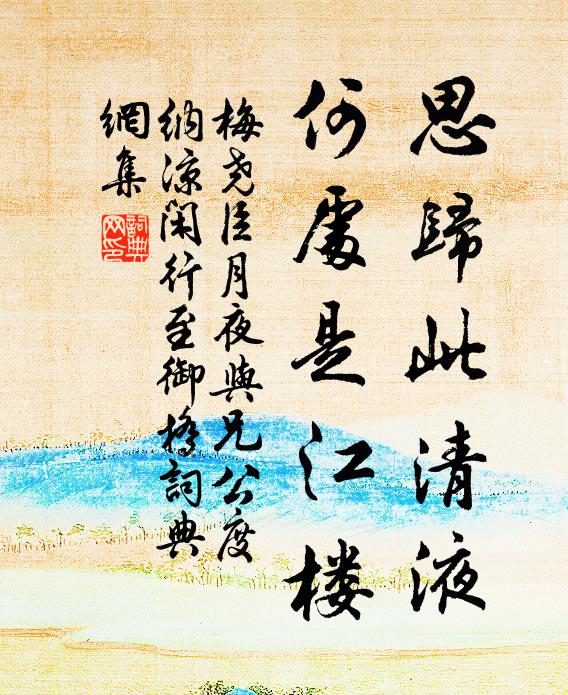 思歸此清液
何處是江楼
梅尧臣月夜與兄公度
納凉閑行至御橋詞典
網集
詞典
网印